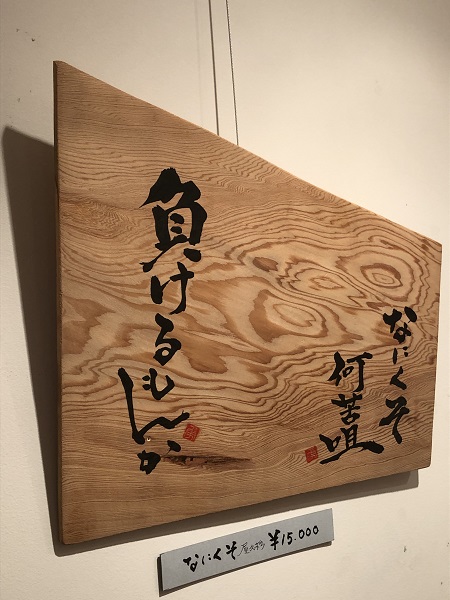 なにくそ
何苦咀
負けるもんか
なにくそ 屋久杉 ¥15.000